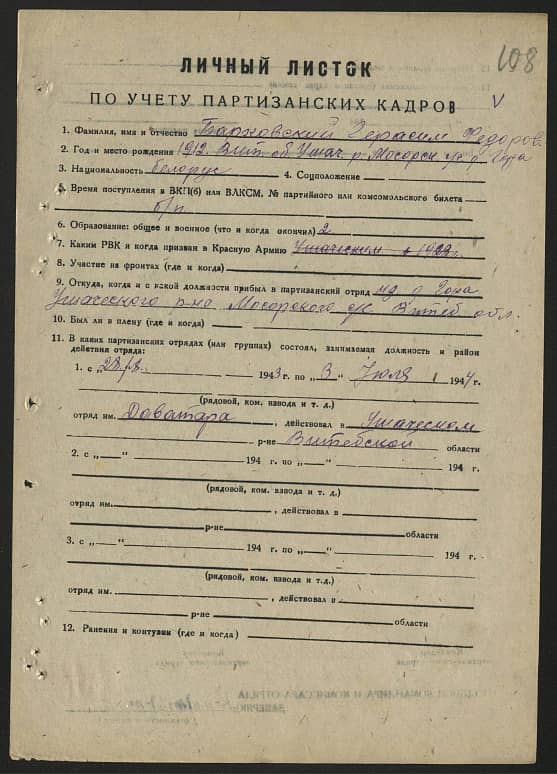 108
ЛИЧНЫЙ ЛИСТОК
ПО УЧЕТУ ПАРТИЗАНСКИХ КАДРОВ
V
1. Фамилия, имя и отчество Барковский Герасим Федоров
2. Год и место рождения 1912. Вит. об Ушач. р. Мосарск. с/с д. Гора
3. Национальность белорус 4. Соцположение
5. Время поступления в ВКП(б) или ВЛКСМ, № партийного или комсомольского билета
б/п
6. Образование: общее и военное (что и когда окончил) 2
7. Каким РВК и когда призван в Красную Армию Ушачским
8. Участие на фронтах (где и когда)
9. Откуда, когда и с какой должности прибыл в партизанский отряд из д. Гора
Ушачского р-на Мосарского с/с Витеб. обл.
10. Был ли в плену (где и когда)
11. В каких партизанских отрядах (или группах) состоял, занимаемая должность и район
действия отряда:
1. с 1943 г. по „3 Июля 1944 г.
(рядовой, ком. взвода и т. д.)
отряд им. Доватара, действовал в Ушачском
р-не Витебской области
2. с „—“ 194 г. по „—“ 194 г.
(рядовой, ком. взвода и т. д.)
отряд им. , действовал в
р-не области
3. с „—“ 194 г. по „—“ 194 г.
(рядовой, ком. взвода и т. д.)
отряд им. , действовал в
р-не области
12. Ранения и контузии (где и когда)